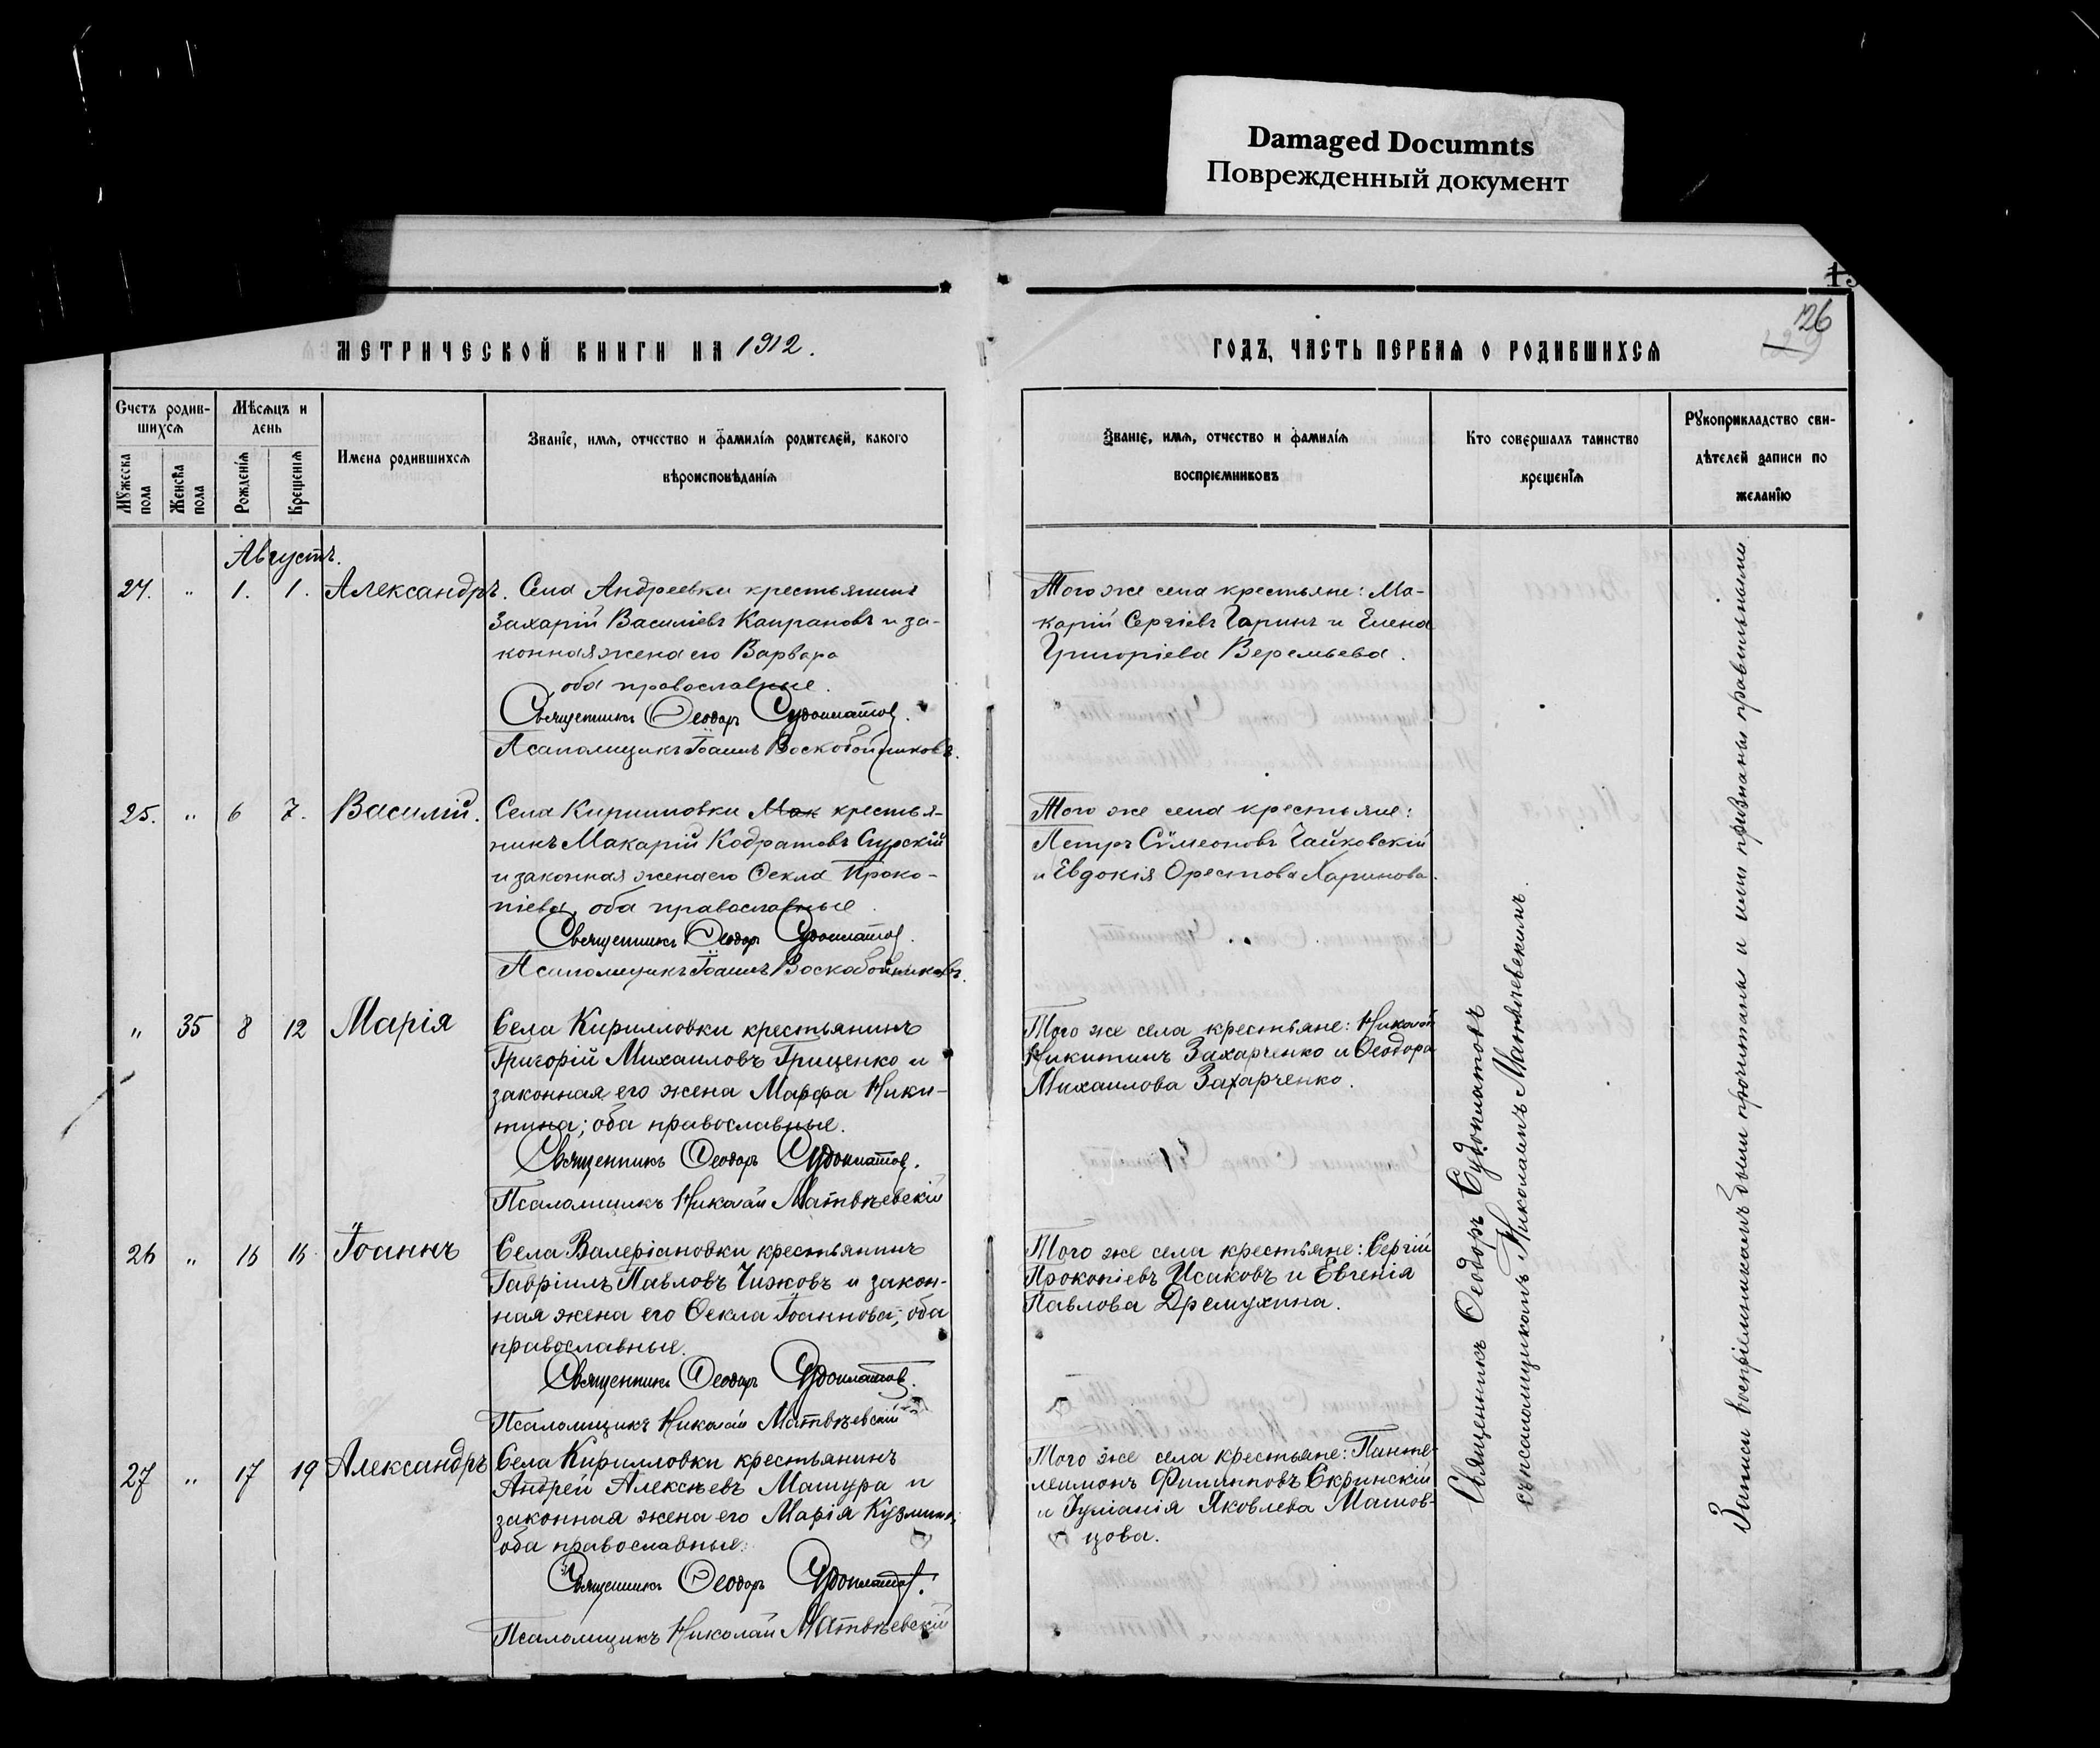 Damaged Documnts
Поврежденный документ
126
МЕТРИЧЕСКОЙ КНИГИ НА 1912.
ГОДЪ, ЧАСТЬ ПЕРВАЯ О РОДИВШИХСЯ
Счетъ родив-
шихся
Мужеска пола
Женска пола
Мѣсяцъ и
день
Рожденія
Крещенія
Имена родившихся
Званіе, имя, отчество и фамилія родителей, какого
вѣроисповѣданія
Званіе, имя, отчество и фамилія
воспріемниковъ
Кто совершалъ таинство
крещенія
Рукоприкладство сви-
дѣтелей записи по
желанію
Августъ.
24. " 1. 1. Александръ.
Села Андреевки крестьянинъ
Захарій Василіевъ Капрановъ и за-
конная жена его Варвара
оба православные.
Священникъ Ѳеодоръ Судоплатовъ.
Псаломщикъ Іоаннъ Воскобойниковъ.
Того же села крестьяне: Ма-
карій Сергіевъ Гаринъ и Елена
Григоріева Веремьева.
25. " 6 7. Василій.
Села Кирилловки Мак крестья-
нинъ Макарій Кодратовъ Сурскій
и законная жена его Ѳекла Проко-
піева, оба православные.
Священникъ Ѳеодоръ Судоплатовъ.
Псаломщикъ Іоаннъ Воскобойниковъ.
Того же села крестьяне:
Петръ Сѵмеоновъ Чайковскій
и Евдокія Орестова Ларинова.
" 35 8 12 Марія
Села Кирилловки крестьянинъ
Григорій Михаиловъ Гриценко и
законная его жена Марфа Ники-
тина; оба православные.
Священникъ Ѳеодоръ Судоплатовъ.
Псаломщикъ Николай Матвѣевскій
Того же села крестьяне: Николай
Никитинъ Захарченко и Ѳеодора
Михаилова Захарченко.
26 " 16 16 Іоаннъ
Села Валеріановки крестьянинъ
Гавріилъ Павловъ Чижовъ и закон-
ная жена его Ѳекла Іоаннова; оба
православные.
Священникъ Ѳеодоръ Судоплатовъ.
Псаломщикъ Николай Матвѣевскій
Того же села крестьяне: Сергій
Прокопіевъ Исаковъ и Евгенія
Павлова Дремухина.
27 " 17 19 Александръ
Села Кирилловки крестьянинъ
Андрей Алексѣевъ Машура и
законная жена его Марія Кузмина;
оба православные.
Священникъ Ѳеодоръ Судоплатовъ.
Псаломщикъ Николай Матвѣевскій
Того же села крестьяне: Панте-
леимонъ Филипповъ Скринскій
и Іуліанія Яковлева Машов-
цова.
Священникъ Ѳеодоръ Судоплатовъ
съ псаломщикомъ Николаемъ Матвѣевскимъ.
Записи воспріемникамъ были прочитаны и ими признаны правильными.